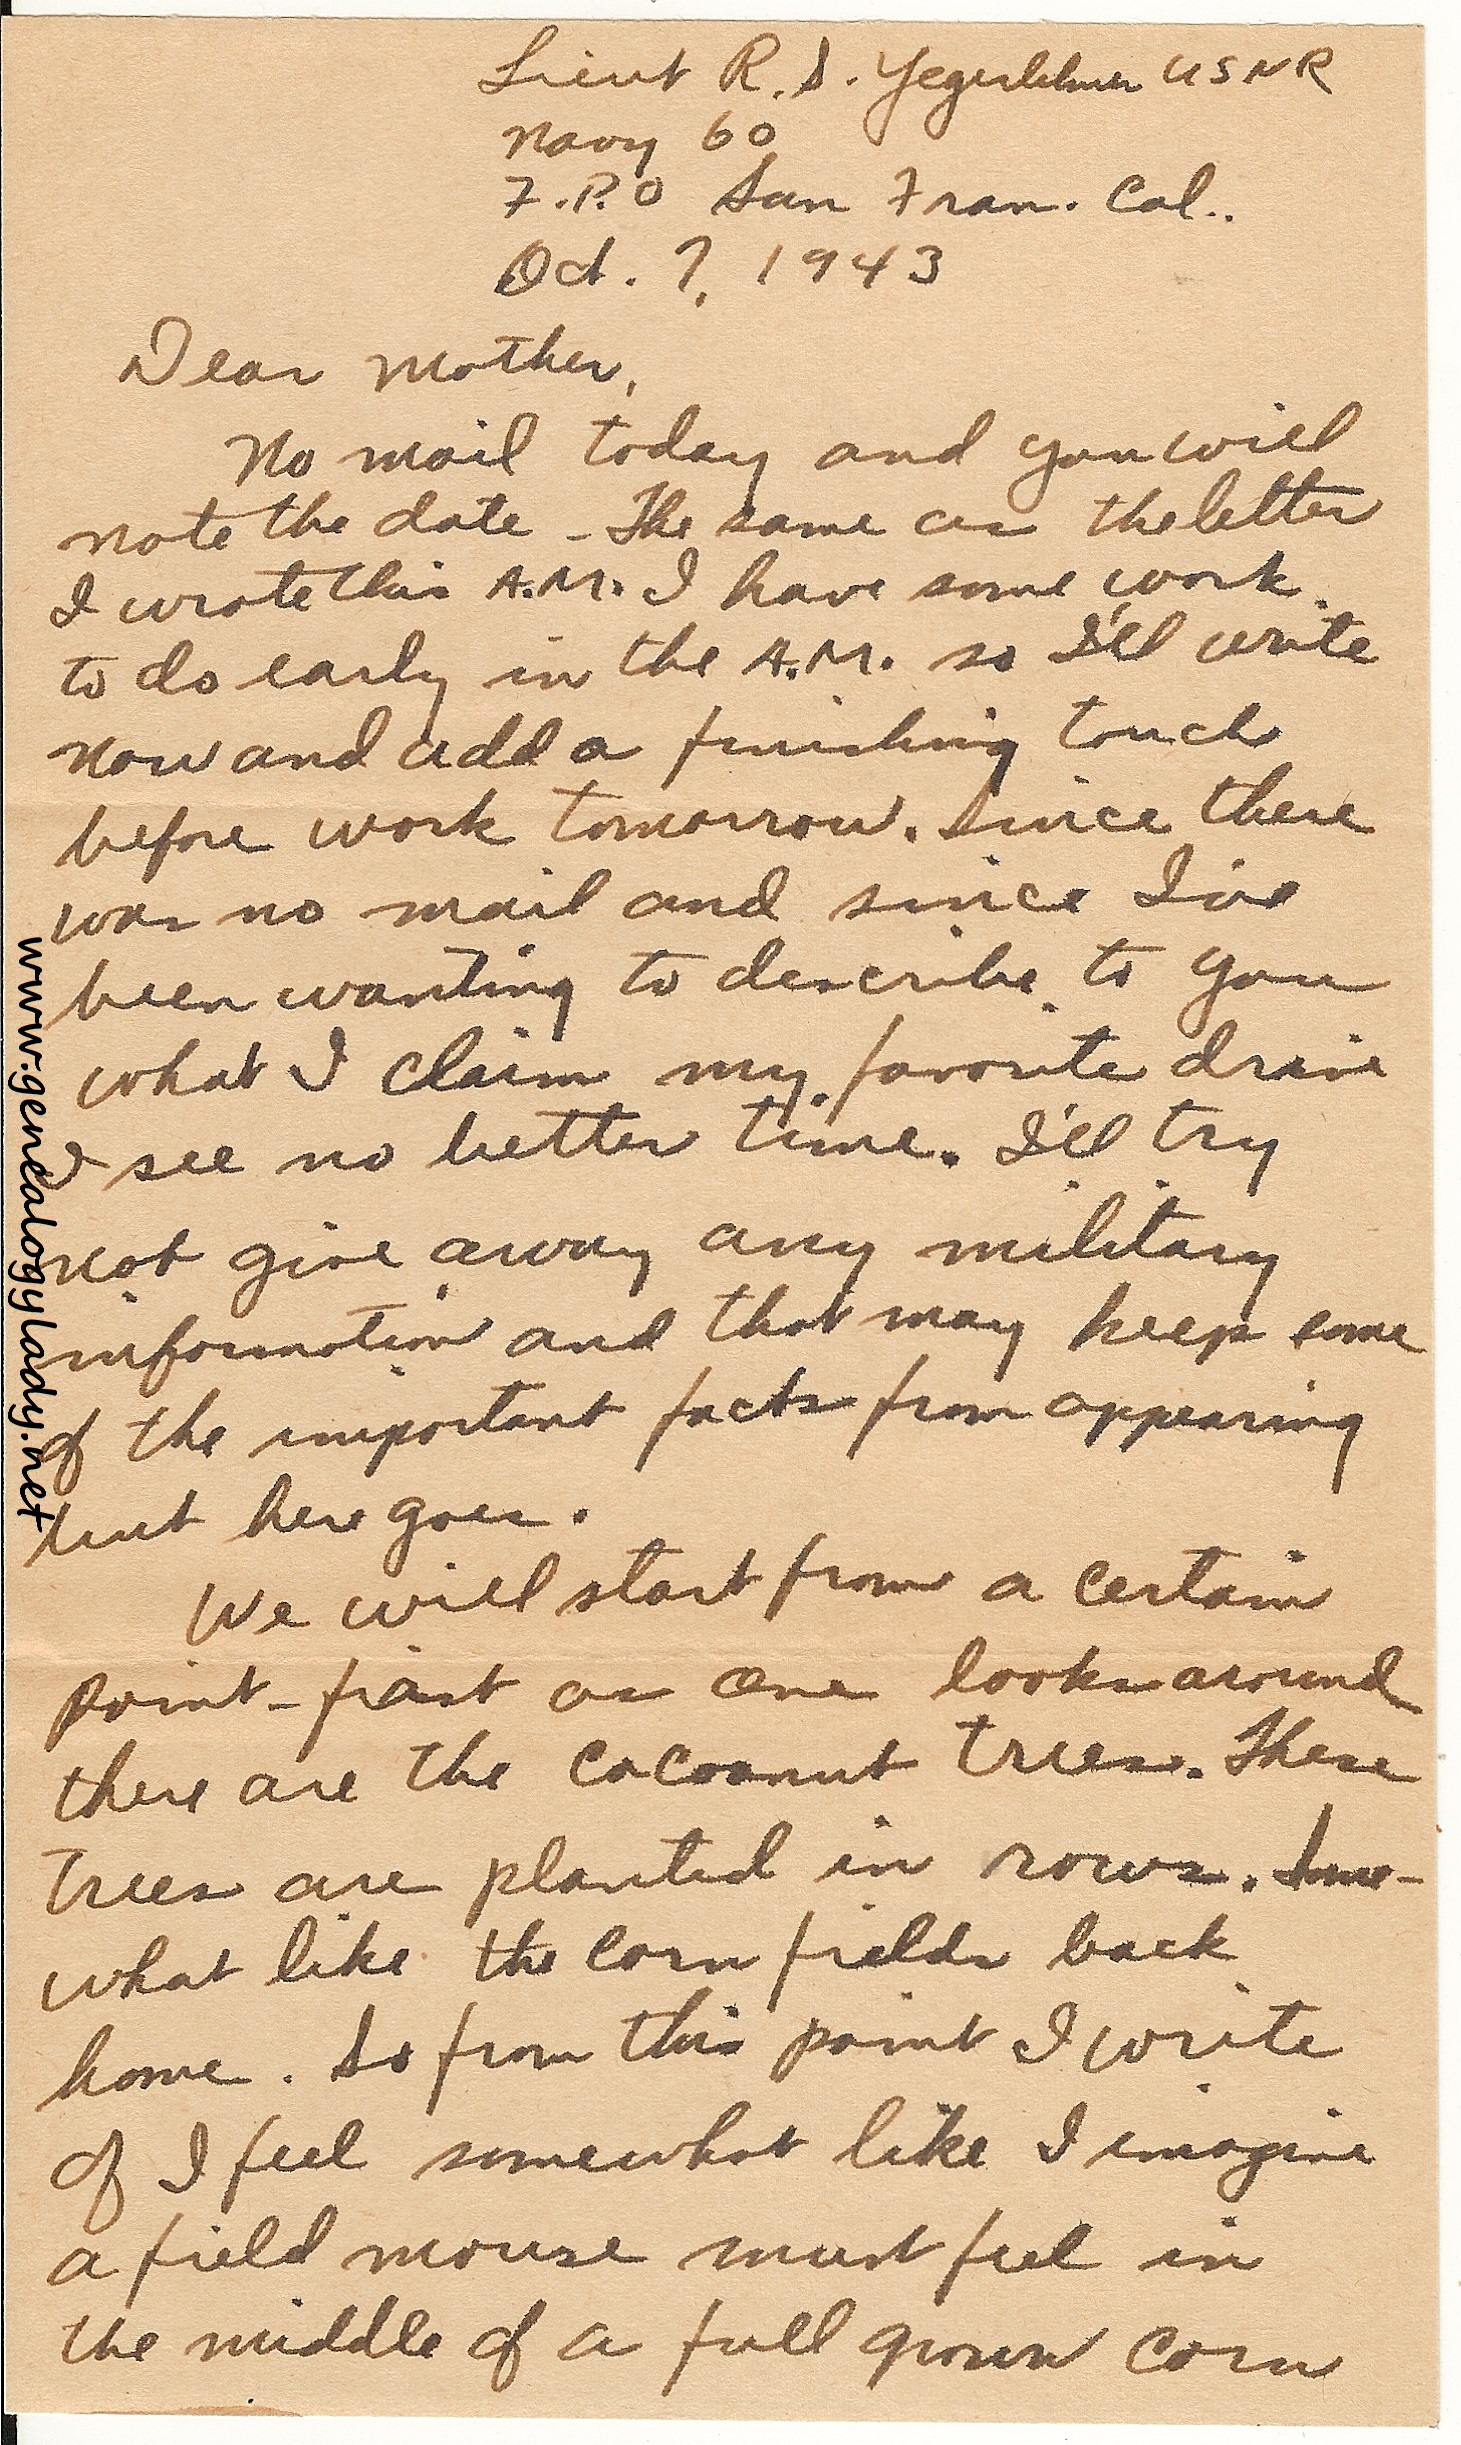 Lieut R. S. Yegerlehner USNR
Navy 60
F.P.O San Fran. Cal..
Oct. 7, 1943
Dear Mother,
No mail today and you will
note the date - The same as the letter
I wrote this A.M. I have some work
to do early in the A.M. so I'll write
now and add a finishing touch
before work tomorrow. Since there
was no mail and since I've
been wanting to describe to you
what I claim my favorite drive
I see no better time. I'll try
not give away any military
information and that may keep some
of the important facts from appearing
but here goes.
We will start from a certain
point - first as one looks around
there are the cocoanut trees. These
trees are planted in rows. Some-
what like the corn fields back
home. So from this point I write
of I feel somewhat like I imagine
a field mouse must feel in
the middle of a full grown corn
www.genealogylady.net